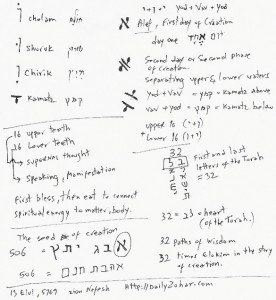 cholam חולם
shuruk שורוק
Chirik חיריק
Kamatz קמץ
yod + vav + yod
Alef, First day of Creation
day one יום אחד
Second day or Second phase of creation
Separating upper & lower waters
yod + vav = קמץ = Kamatz Above
vav + yod = קמץ = Kamatz below
upper 16 (י+ו)
Lower 16 (ו+י)
16 upper teeth
16 lower teeth
Supernal thought
Speaking, Manifestation
First bless, then eat to connect
spiritual energy to matter, body.
32
ב
ל
First and last
letters of the Torah
= 32
32 = לב = heart
(of the Torah.)
32 paths of wisdom
32 times Elokim in the story
of creation.
The seed of creation
506 = אבג יתץ
506 = אהבת חנם
13 Elul, 5769 Zion Nefesh http://DailyZohar.com